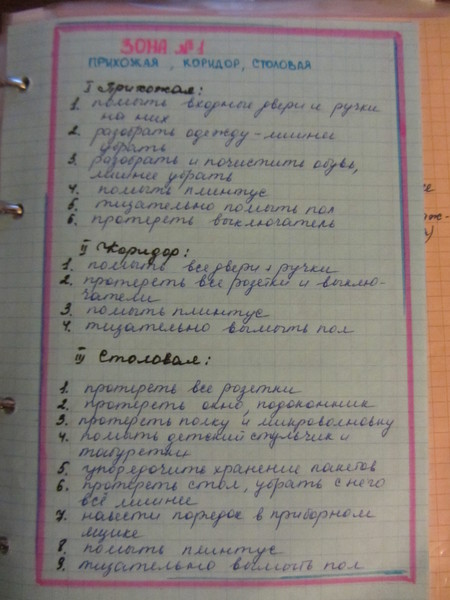 ЗОНА № 1
ПРИХОЖАЯ, КОРИДОР, СТОЛОВАЯ
I Прихожая:
1. помыть входные двери и ручки
на них
2. разобрать одежду - лишнее
убрать
3. разобрать и почистить обувь,
лишнее убрать
4. помыть плинтус
5. тщательно помыть пол
6. протереть выключатель
II Коридор:
1. помыть все двери + ручки
2. протереть все розетки и выклю-
чатели
3. помыть плинтус
4. тщательно вымыть пол
III Столовая:
1. протереть все розетки
2. протереть окно, подоконник
3. протереть полку и микроволновку
4. помыть детский стульчик и
табуретки
5. упорядочить хранение пакетов
6. протереть стол, убрать с него
всё лишнее
7. навести порядок в приборном
ящике
8. помыть плинтус
9. тщательно вымыть пол